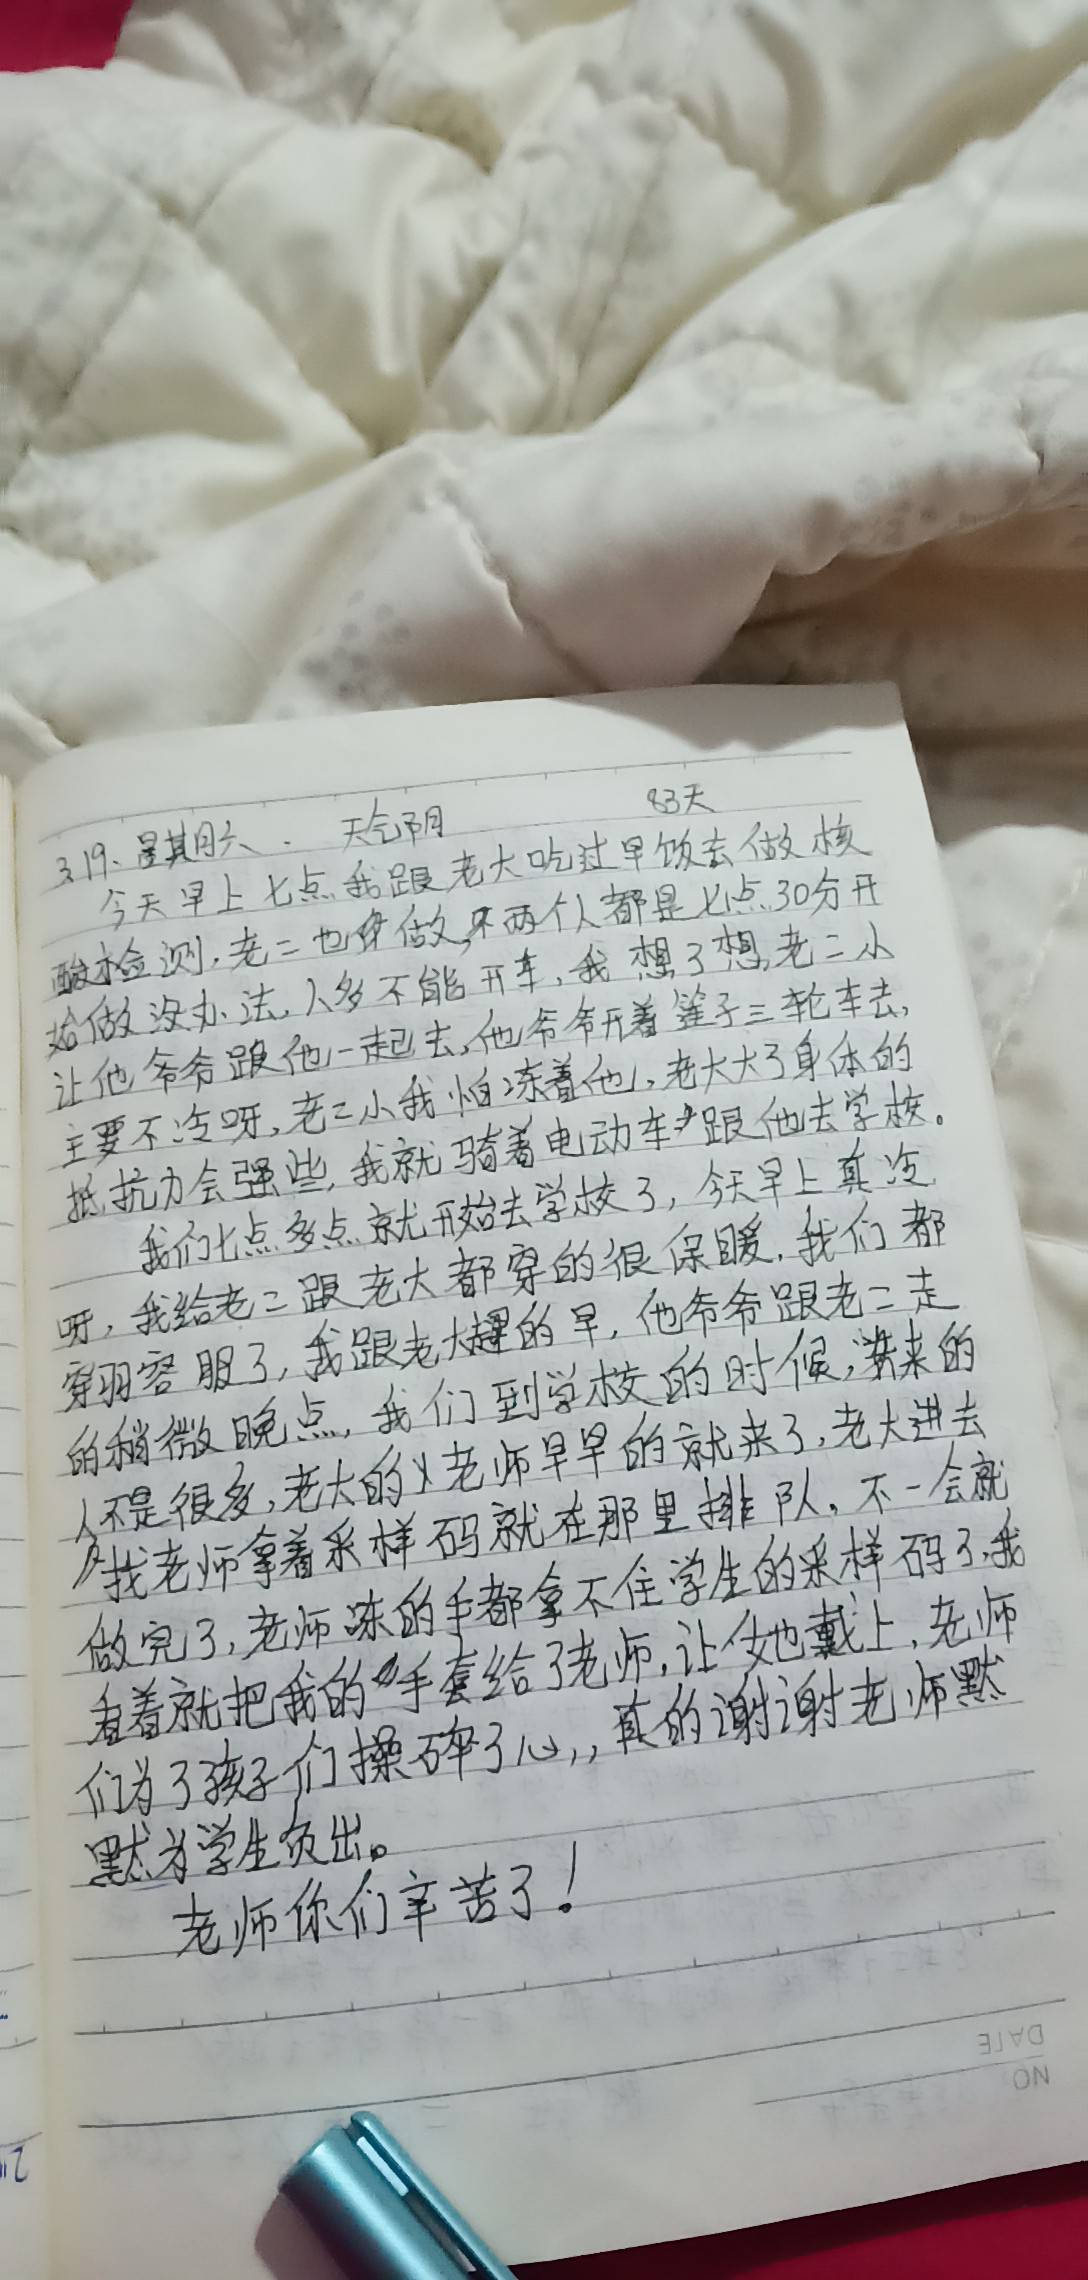 3.19. 星其月六 . 天气阴 83天
今天早上七点我跟老大吃过早饭去做核
酸检测,老二也做,两个人都是七点30分开
始做没办法,人多不能开车,我想了想,老二小
让他爷爷跟他一起去,他爷爷开着篷子三轮车去,
主要不冷呀,老二小我怕冻着他,老大大了身体的
抵抗力会强些,我就骑着电动车跟他去学校。
我们七点多点就开始去学校了,今天早上真冷
呀,我给老二跟老大都穿的很保暖,我们都
穿羽容服了,我跟老大起的早,他爷爷跟老二走
的稍微晚点,我们到学校的时候,来的
人不是很多,老大的老师早早的就来了,老大进去
找老师拿着采样码就在那里排队,不一会就
做完了,老师冻的手都拿不住学生的采样码了,我
看着就把我的手套给了老师,让她戴上,老师
们为了孩子们操碎了心,,真的谢谢老师默
默为学生负出。
老师你们辛苦了!
DATE
NO